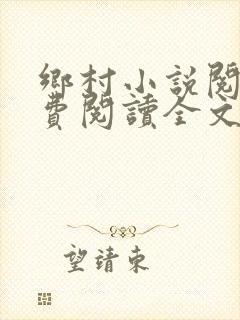 鄉村小說閱
費閱讀全文
望靖東